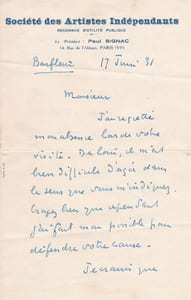 Société des Artistes Indépendants
RECONNUE D'UTILITÉ PUBLIQUE
Le Président : Paul SIGNAC
14, Rue de l'Abbaye, PARIS (VIe)
Barfleur 17 Juin 31
Monsieur
J'ai regretté
mon absence lors de votre
visite. De loin, il m'est
bien difficile d'agir dans
le sens que vous m'indiquez.
Croyez bien que cependant
j'ai fait mon possible pour
défendre votre cause.
Je crains que